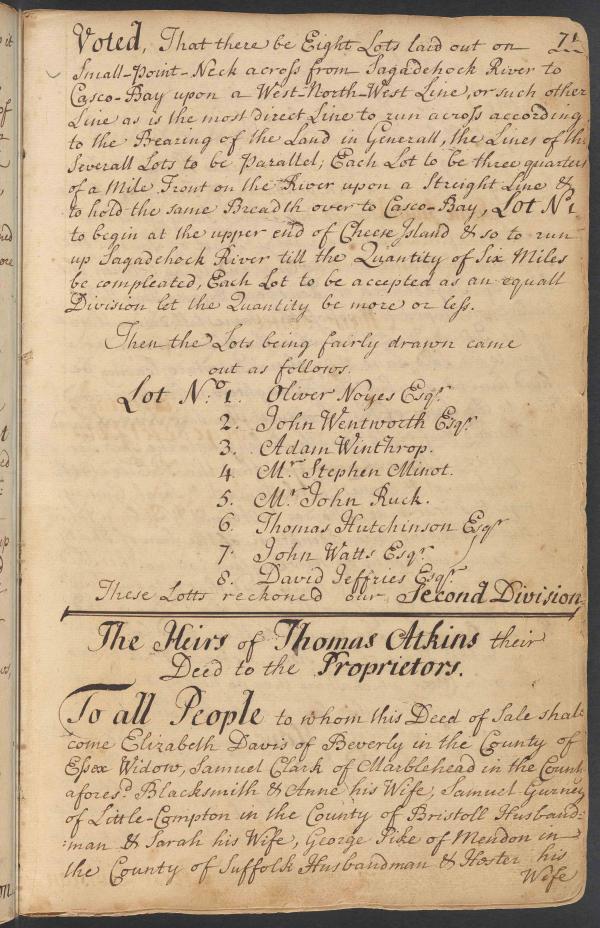 71
Voted, That there be Eight Lots laid out on
Small-Point-Neck across from Sagadehock River to
Casco-Bay upon a West-North-West Line, or such other
Line as is the most direct Line to run across according
to the Bearing of the Land in Generall, the Lines of the
Severall Lots to be Parallel; Each Lot to be three quarters
of a Mile Front on the River upon a Streight Line &
to hold the same Breadth over to Casco-Bay, Lot No. 1
to begin at the upper end of Cheese Island & so to run
up Sagadehock River till the Quantity of Six Miles
be compleated, Each Lot to be accepted as an equall
Division let the Quantity be more or less.
Then the Lots being fairly drawn came
out as follows.
Lot No. 1. Oliver Noyes Esqr.
2. John Wentworth Esqr.
3. Adam Winthrop.
4. Mr. Stephen Minot.
5. Mr. John Ruck.
6. Thomas Hutchinson Esqr.
7. John Watts Esqr.
8. David Jeffries Esqr.
These Lotts reckoned our Second Division
The Heirs of Thomas Atkins their
Deed to the Proprietors.
To all People to whom this Deed of Sale shall
come Elizabeth Davis of Beverly in the County of
Essex Widow, Samuel Clark of Marblehead in the County
aforesd. Blacksmith & Anne his Wife, Samuel Gurney
of Little-Compton in the County of Bristoll Husband=
=man & Sarah his Wife, George Pike of Mendon in
the County of Suffolk Husbandman & Hester his
Wife